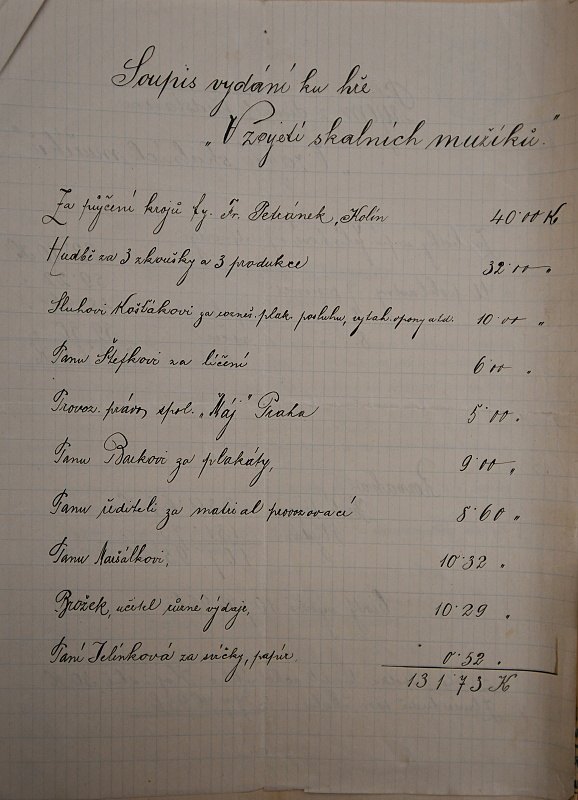 Soupis vydání ku hře
„V zajetí skalních mužíků."
Za půjčení krojů fy. Fr. Petránek, Kolín 40·00 K
Hudbě za 3 zkoušky a 3 produkce 32·00 „
Sluhovi Košťákovi za roznéš. plak. posluhu, vytah. opony atd. 10·00 „
Panu Štefkovi za líčení 6·00 „
Provoz. právo, spol. „Máj" Praha 5·00 „
Panu Barkovi za plakáty, 9·00 „
Panu řediteli za material provozovací 8·60 „
Panu Maršálkovi, 10·32 „
Brožek, učitel různé výdaje, 10·29 „
Paní Jelínková za svíčky, papír, 0·52 „
131·73 K